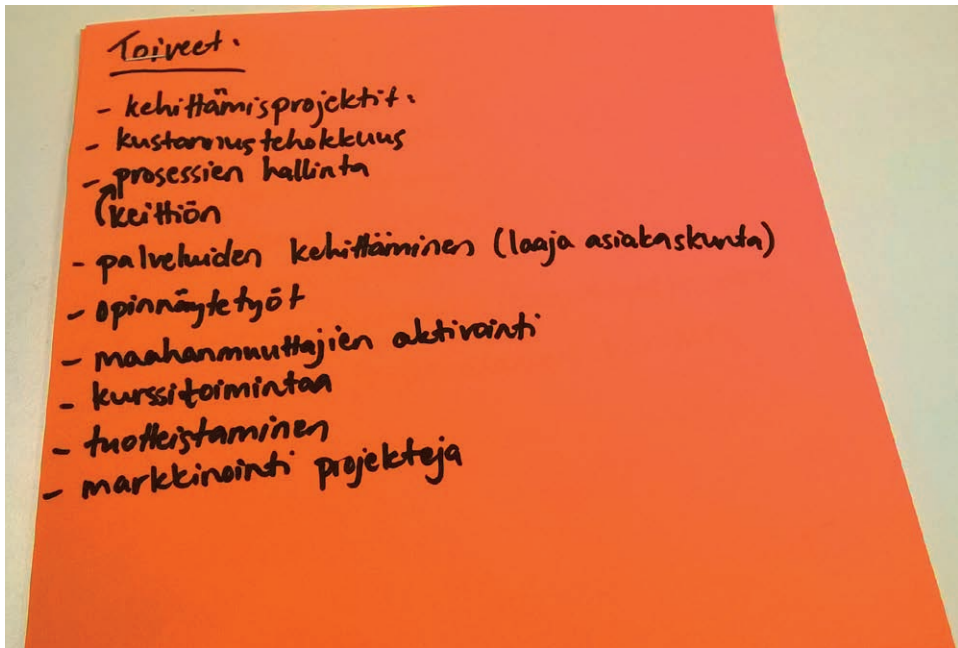 Toiveet.
- kehittämisprojektit.
- kustannustehokkuus
- prosessien hallinta
keittiön
- palveluiden kehittäminen (laaja asiakaskunta)
- opinnäytetyöt
- maahanmuuttajien aktivointi
- kurssitoimintaa
- tuotteistaminen
- markkinointi projekteja